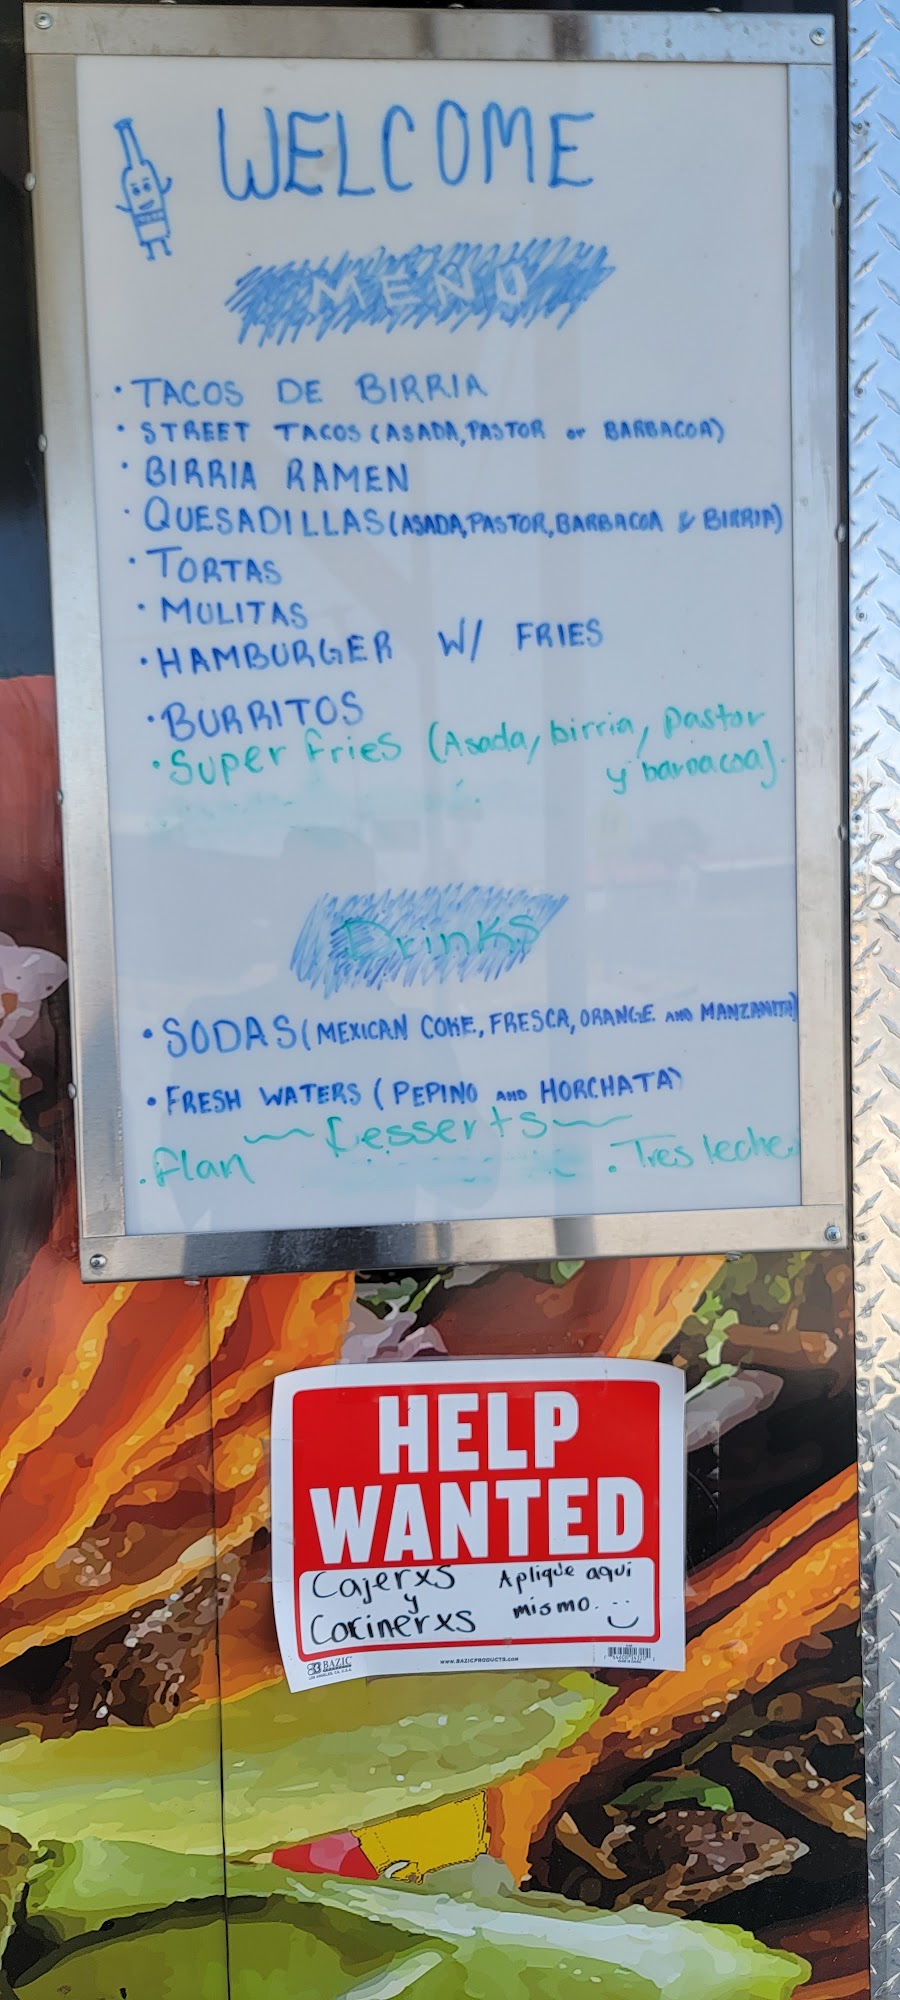 WELCOME
MENU
· TACOS DE BIRRIA
· STREET TACOS (ASADA, PASTOR or BARBACOA)
· BIRRIA RAMEN
· QUESADILLAS (ASADA, PASTOR, BARBACOA & BIRRIA)
· TORTAS
· MULITAS
· HAMBURGER W/ FRIES
· BURRITOS
· Super fries (Asada, birria, pastor
y barbacoa).
Drinks
· SODAS (MEXICAN COKE, FRESCA, ORANGE AND MANZANITA)
· FRESH WATERS (PEPINO AND HORCHATA)
~ Desserts ~
. flan . Tres leche
HELP
WANTED
Cajerxs
y
Cocinerxs
Aplique aqui
mismo.
BAZIC
WWW.BAZICPRODUCTS.COM